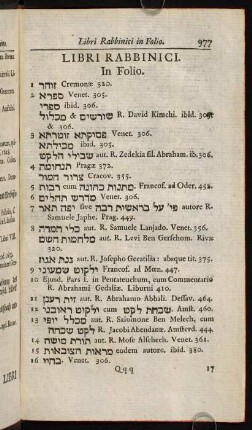 Libri Rabbinici in Folio. 977
LIBRI RABBINICI.
In Folio.
1 זוהר Cremonæ 320.
2 ספרא Venet. 305.
ספרי ibid. 306.
שורשים & מכלול R. David Kimchi. ibid.
& 306.
3 פסיקתא זוטרתא Venet. 306.
מכילתא ibid. 305.
שבולי הלקט aut. R. Zedekia fil. Abraham. ib. 306.
4 תנחומה Pragæ 372.
צרור המור Cracov. 355.
5 רבות cum מתנות כהונה. Francof. ad Oder, 452.
6 מדרש תהלים Venet. 306.
7 יפה תאר sive פי' על בראשית רבה autore R.
Samuele Japhe. Prag. 449.
8 כלי חמדה aut. R. Samuele Lanjado. Venet. 356.
מלחמות השם aut. R. Levi Ben Gerschom. Rivæ
320.
גנת אגוז aut. R. Josepho Geratilia: absque tit. 375.
9 ילקוט שמעוני Francof. ad Mœn. 447.
10 Ejusd. Pars I. in Pentateuchum, cum Commentario
R. Abrahami Gedaliæ. Liburni 410.
11 זית רענן aut. R. Abrahamo Abbali. Dessav. 464.
12 שכחת לקט cum ילקוט ראובני Amst. 460.
13 מכלל יופי aut. R. Salomone Ben Melech, cum
לקט שכחה R. Jacobi Abendanæ. Amsterd. 444.
14 תורת משה aut. R. Mose Alschech. Venet. 361.
15 מראות הצובאות eodem autore. ibid. 380.
16 בחיי Venet. 306.
Qqq 17
LIBRI